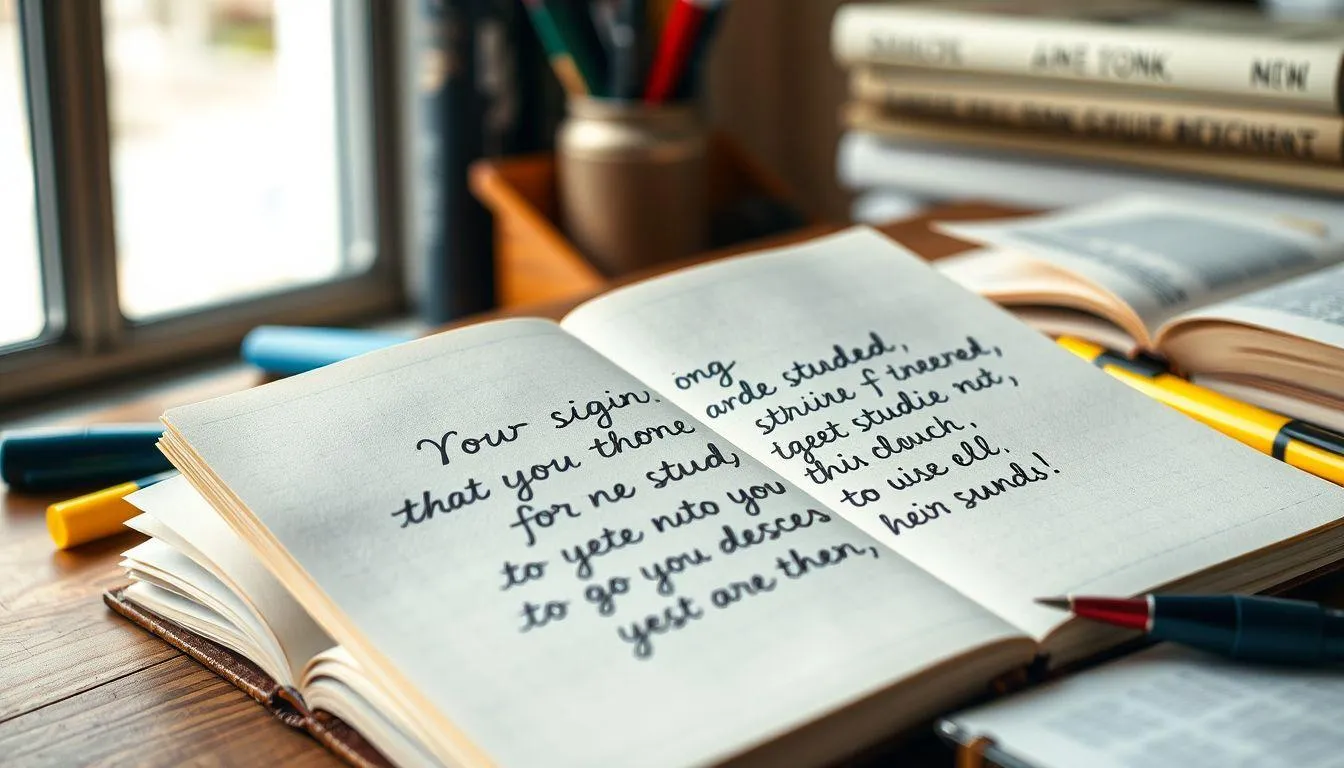 SAUOE ANE TONK NEW
Your sigin.
that you thone
for ne stud,
to yete nuto you
to go you desces
yest are then,
ong
arde studed,
striire f tneered,
tgeet studie nut,
this dauch,
to wise ell.
hein sunds!